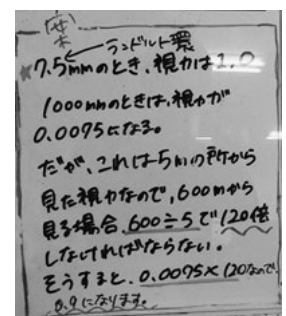 ランドルト環
7.5mmのとき、視力は1.0
1000mmのときは、視力が
0.0075になる。
だが、これは5mの所から
見た視力なので、600mから
見る場合、600÷5で120倍
しなければならない。
そうすると、0.0075×120なので
0.9になります。